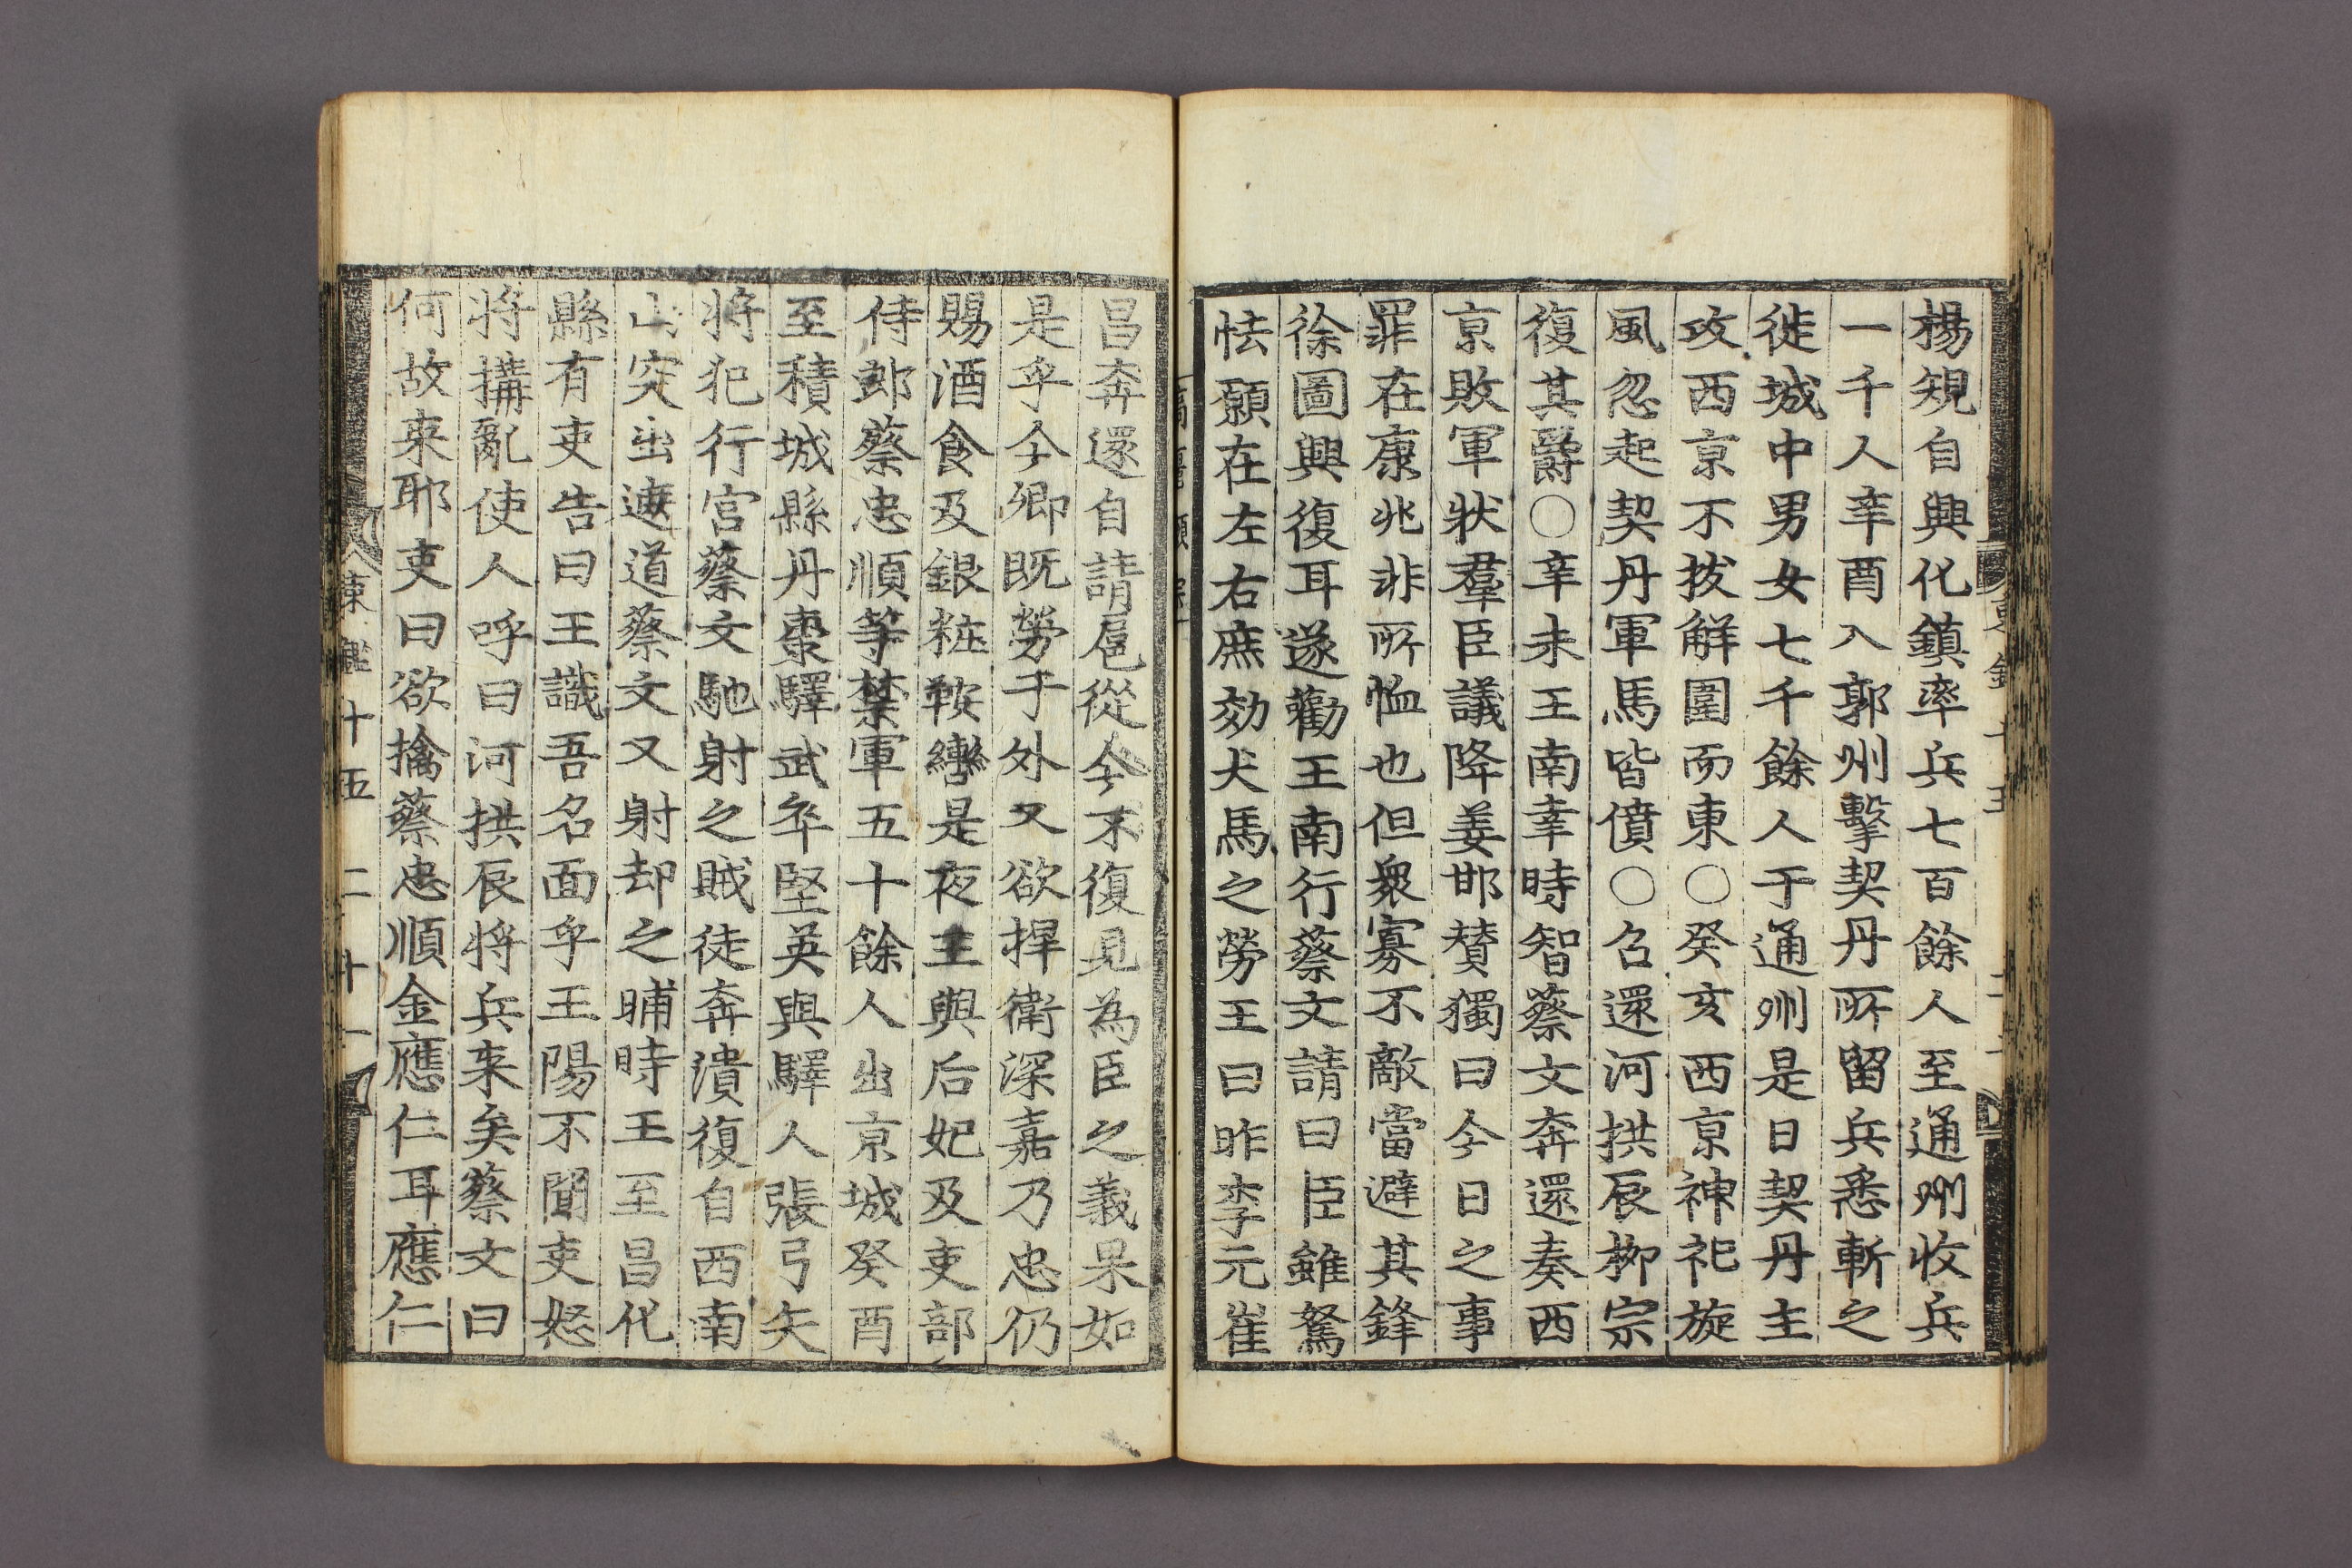 楊規自興化鎭率兵七百餘人至通州收兵
一千人辛酉入郭州擊契丹所留兵悉斬之
徙城中男女七千餘人于通州是日契丹主
攻西京不拔解圍而東○癸亥西京神祀旋
風忽起契丹軍馬皆僨○召還河拱辰柳宗
復其爵○辛未王南幸時智蔡文奔還奏西
京敗軍狀羣臣議降姜邯贊獨曰今日之事
罪在康兆非所恤也但衆寡不敵當避其鋒
徐圖興復耳遂勸王南行蔡文請曰臣雖駑
怯願在左右庶効犬馬之勞王曰昨李元崔
昌奔還自請扈從今不復見為臣之義果如
是乎今卿既勞于外又欲捍衛深嘉乃忠仍
賜酒食及銀粧鞍轡是夜王與后妃及吏部
侍郎蔡忠順等禁軍五十餘人出京城癸酉
至積城縣丹棗驛武卒堅英與驛人張弓矢
將犯行宮蔡文馳射之賊徒奔潰復自西南
山突出遮道蔡文又射却之晡時王至昌化
縣有吏告曰王識吾名面乎王陽不聞吏怒
將搆亂使人呼曰河拱辰將兵来矣蔡文曰
何故来耶吏曰欲擒蔡忠順金應仁耳應仁
東鑑十五 二十一